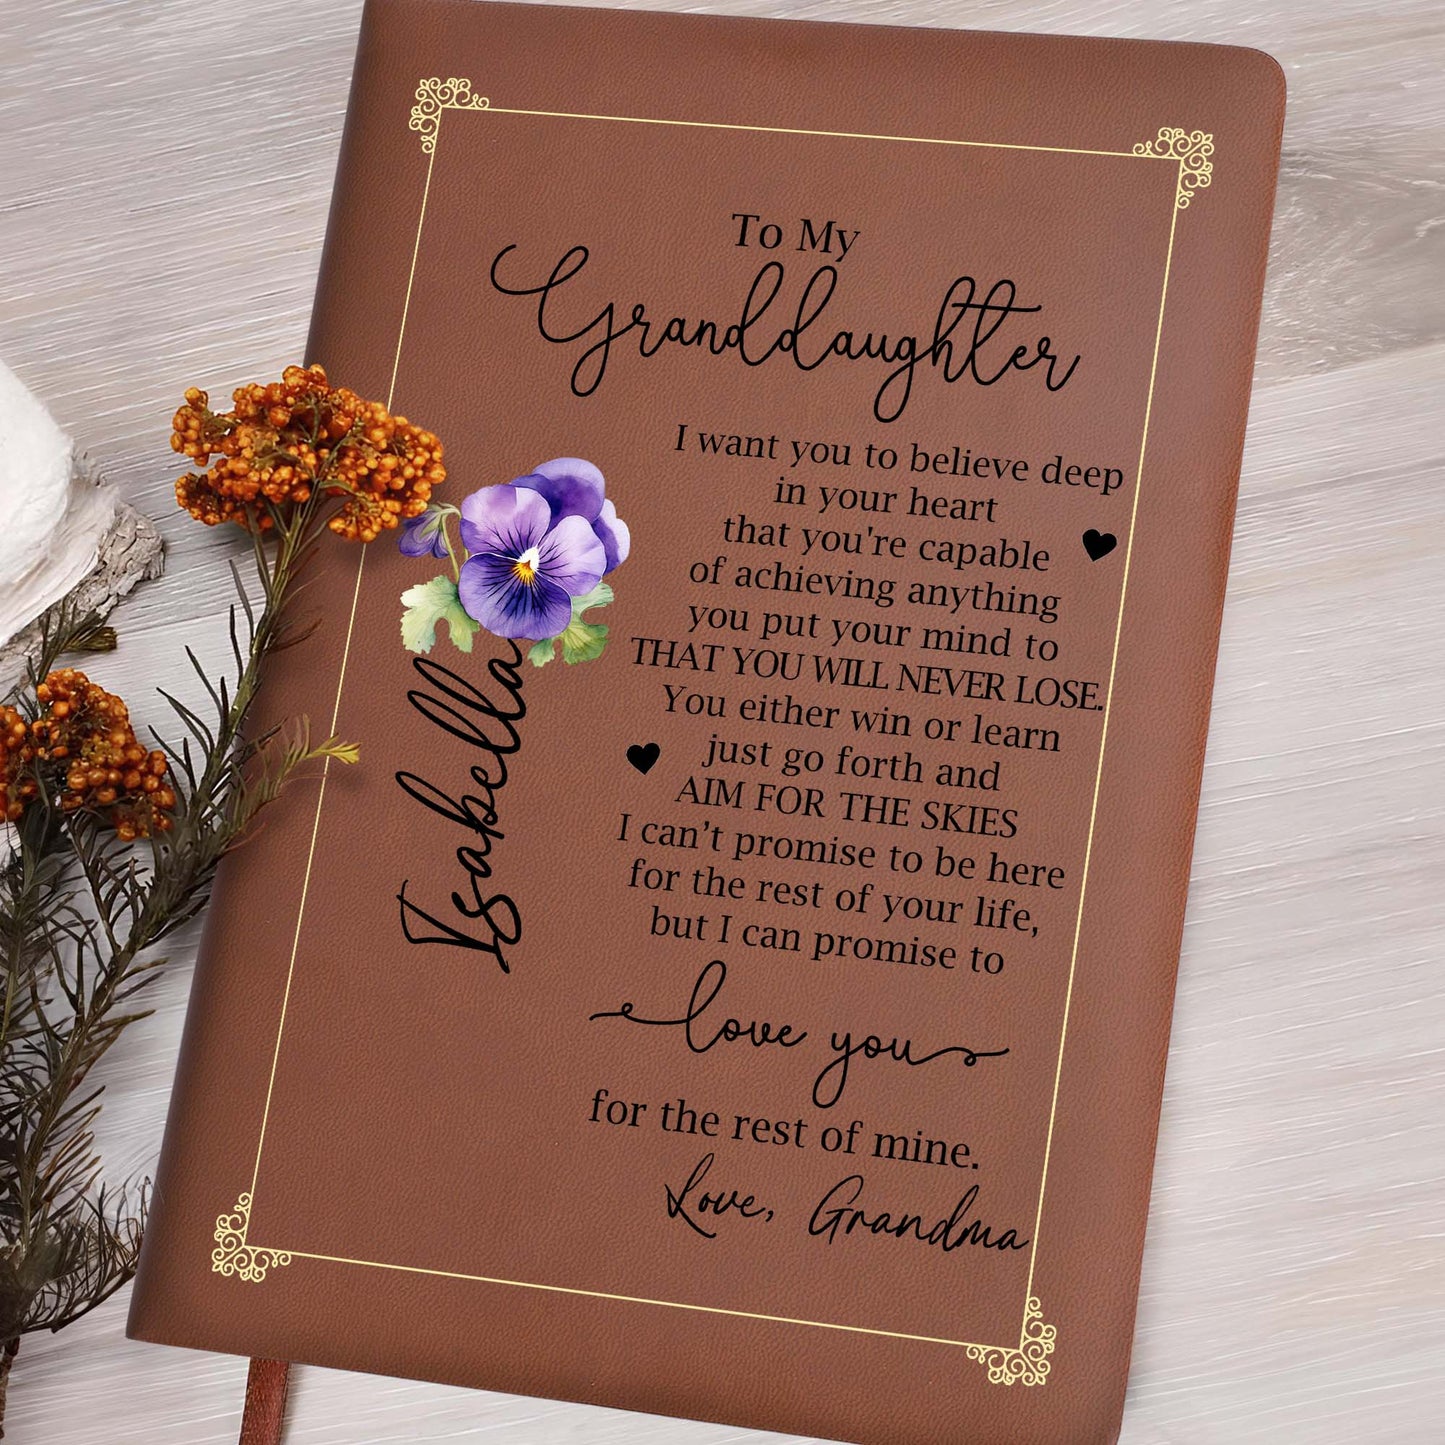 To My
Granddaughter
I want you to believe deep
in your heart
that you're capable
of achieving anything
you put your mind to
THAT YOU WILL NEVER LOSE.
You either win or learn
just go forth and
AIM FOR THE SKIES
I can’t promise to be here
for the rest of your life,
but I can promise to
love you
for the rest of mine.
Love, Grandma
Isabella